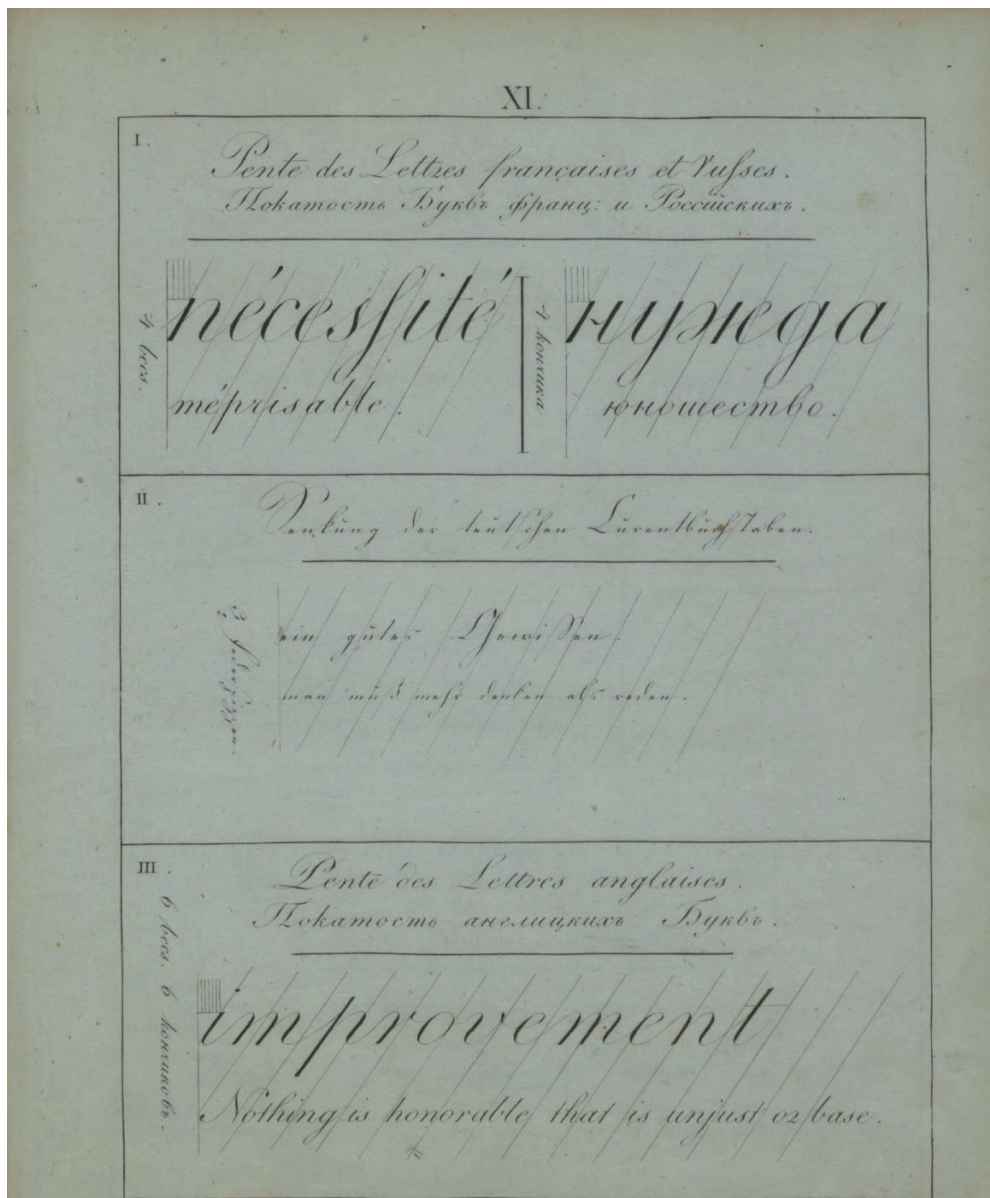 XI.
I.
Pente des Lettres françaises et Russes.
Покатость Буквъ франц: и Россійскихъ.
4 becs.
nécessité
méprisable.
4 кончика
нужда
юношество.
II.
Senkung der teutschen Curentbuchstaben.
3 Federspizzen.
ein gutes Gewissen.
man muß mehr denken als reden.
III.
Pente des Lettres anglaises.
Покатость англицкихъ Буквъ.
6 becs. 6 кончиковъ.
improvement
Nothing is honorable that is unjust or base.